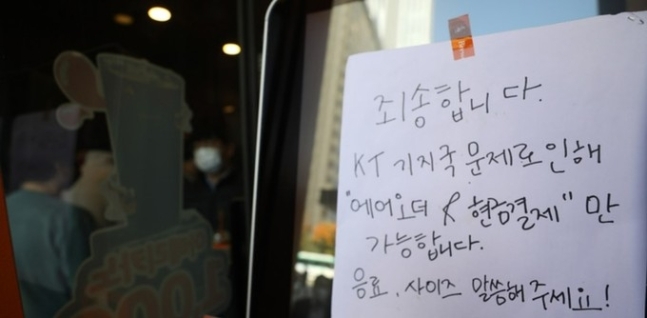 죄송합니다.
KT 기지국 문제로 인해
"에어오더 & 현금결제" 만
가능합니다.
음료, 사이즈 말씀해 주세요!